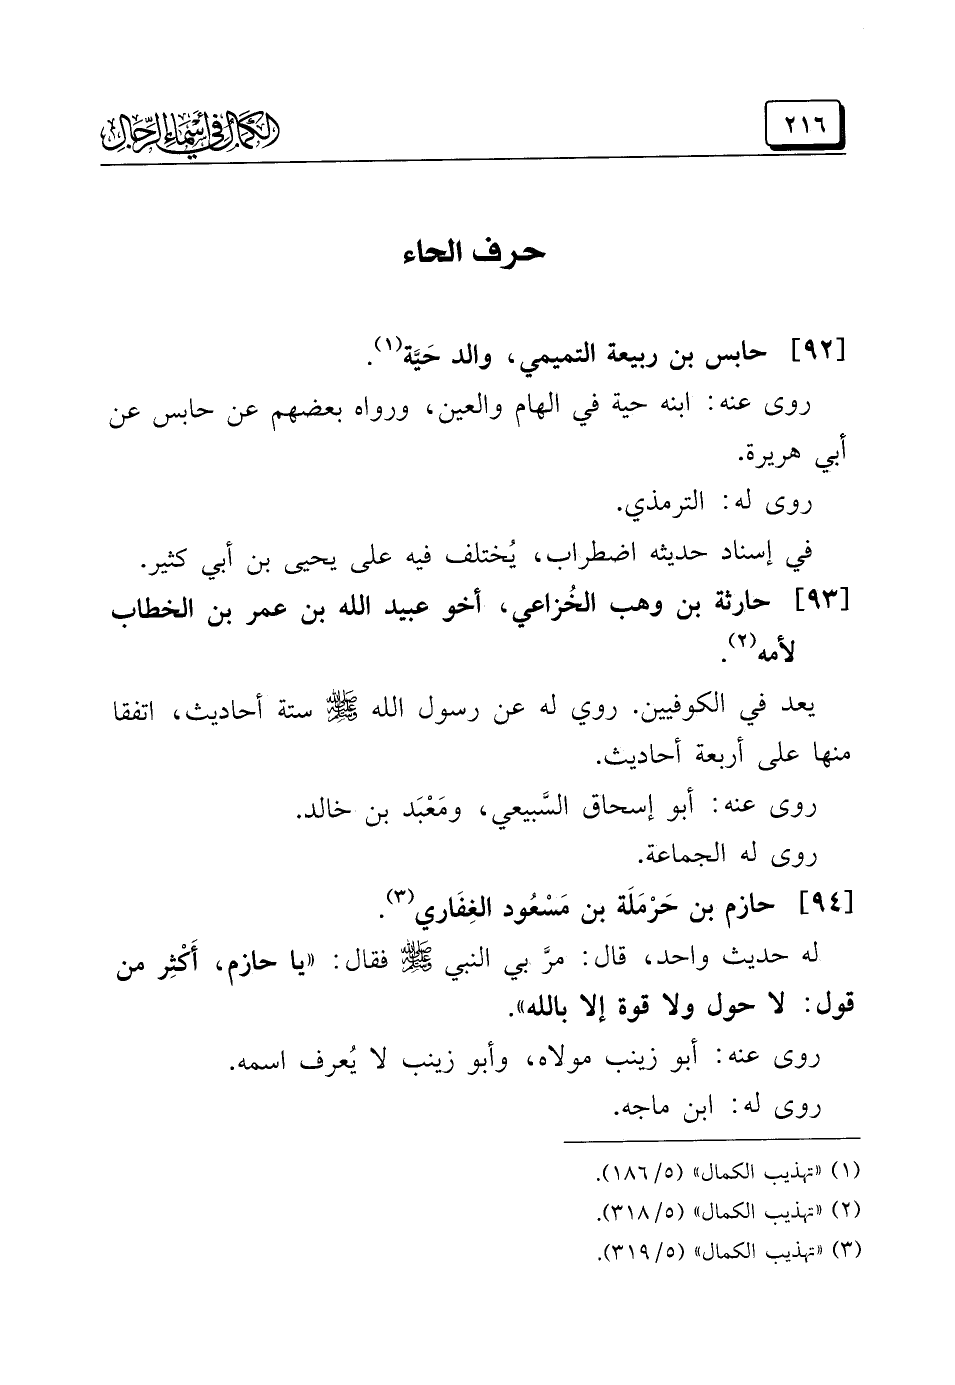 ٢١٦
الكمال في أسماء الرجال
حرف الحاء
[٩٢] حابس بن ربيعة التميمي، والد حَيَّة(١).
روى عنه: ابنه حية في الهام والعين، ورواه بعضهم عن حابس عن
أبي هريرة.
روى له: الترمذي.
في إسناد حديثه اضطراب، يُختلف فيه على يحيى بن أبي كثير.
[٩٣] حارثة بن وهب الخُزاعي، أخو عبيد الله بن عمر بن الخطاب
لأمه(٢).
يعد في الكوفيين. روي له عن رسول الله ﷺ ستة أحاديث، اتفقا
منها على أربعة أحاديث.
روى عنه: أبو إسحاق السَّبيعي، ومَعْبَد بن خالد.
روى له الجماعة.
[٩٤] حازم بن حَرْمَلَة بن مَسْعُود الغِفَاري(٣).
له حديث واحد، قال: مرَّ بي النبي ﷺ فقال: «يا حازم، أَكْثِر من
قول: لا حول ولا قوة إلا بالله».
روى عنه: أبو زينب مولاه، وأبو زينب لا يُعرف اسمه.
روى له: ابن ماجه.
(١) «تهذيب الكمال» (٥/ ١٨٦).
(٢) «تهذيب الكمال» (٥/ ٣١٨).
(٣) «تهذيب الكمال» (٥/ ٣١٩).